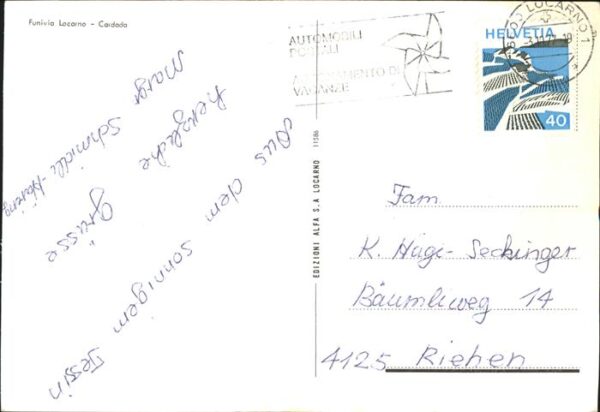 Funivia Locarno - Cardada
Aus dem sonnigem Tessin
herzliche Grüsse
Margr Schmidli-Häring
EDIZIONI ALFA S.A LOCARNO 11586
AUTOMOBILI
POSTALI
VACANZE
LOCARNO 1
HELVETIA
40
Fam.
K. Hägi-Seckinger
Bäumliweg 14
4125 Riehen